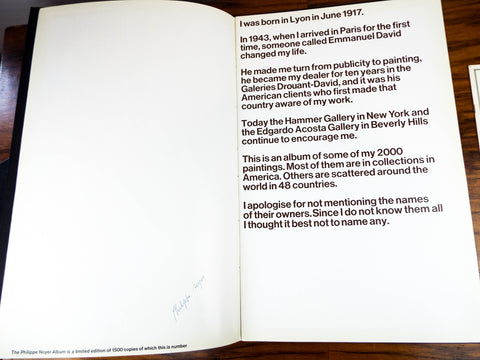 I was born in Lyon in June 1917.
In 1943, when I arrived in Paris for the first
time, someone called Emmanuel David
changed my life.
He made me turn from publicity to painting,
he became my dealer for ten years in the
Galeries Drouant-David, and it was his
American clients who first made that
country aware of my work.
Today the Hammer Gallery in New York and
the Edgardo Acosta Gallery in Beverly Hills
continue to encourage me.
This is an album of some of my 2000
paintings. Most of them are in collections in
America. Others are scattered around the
world in 48 countries.
I apologise for not mentioning the names
of their owners. Since I do not know them all
I thought it best not to name any.
Philippe Noyer
The Philippe Noyer Album is a limited edition of 1500 copies of which this is number